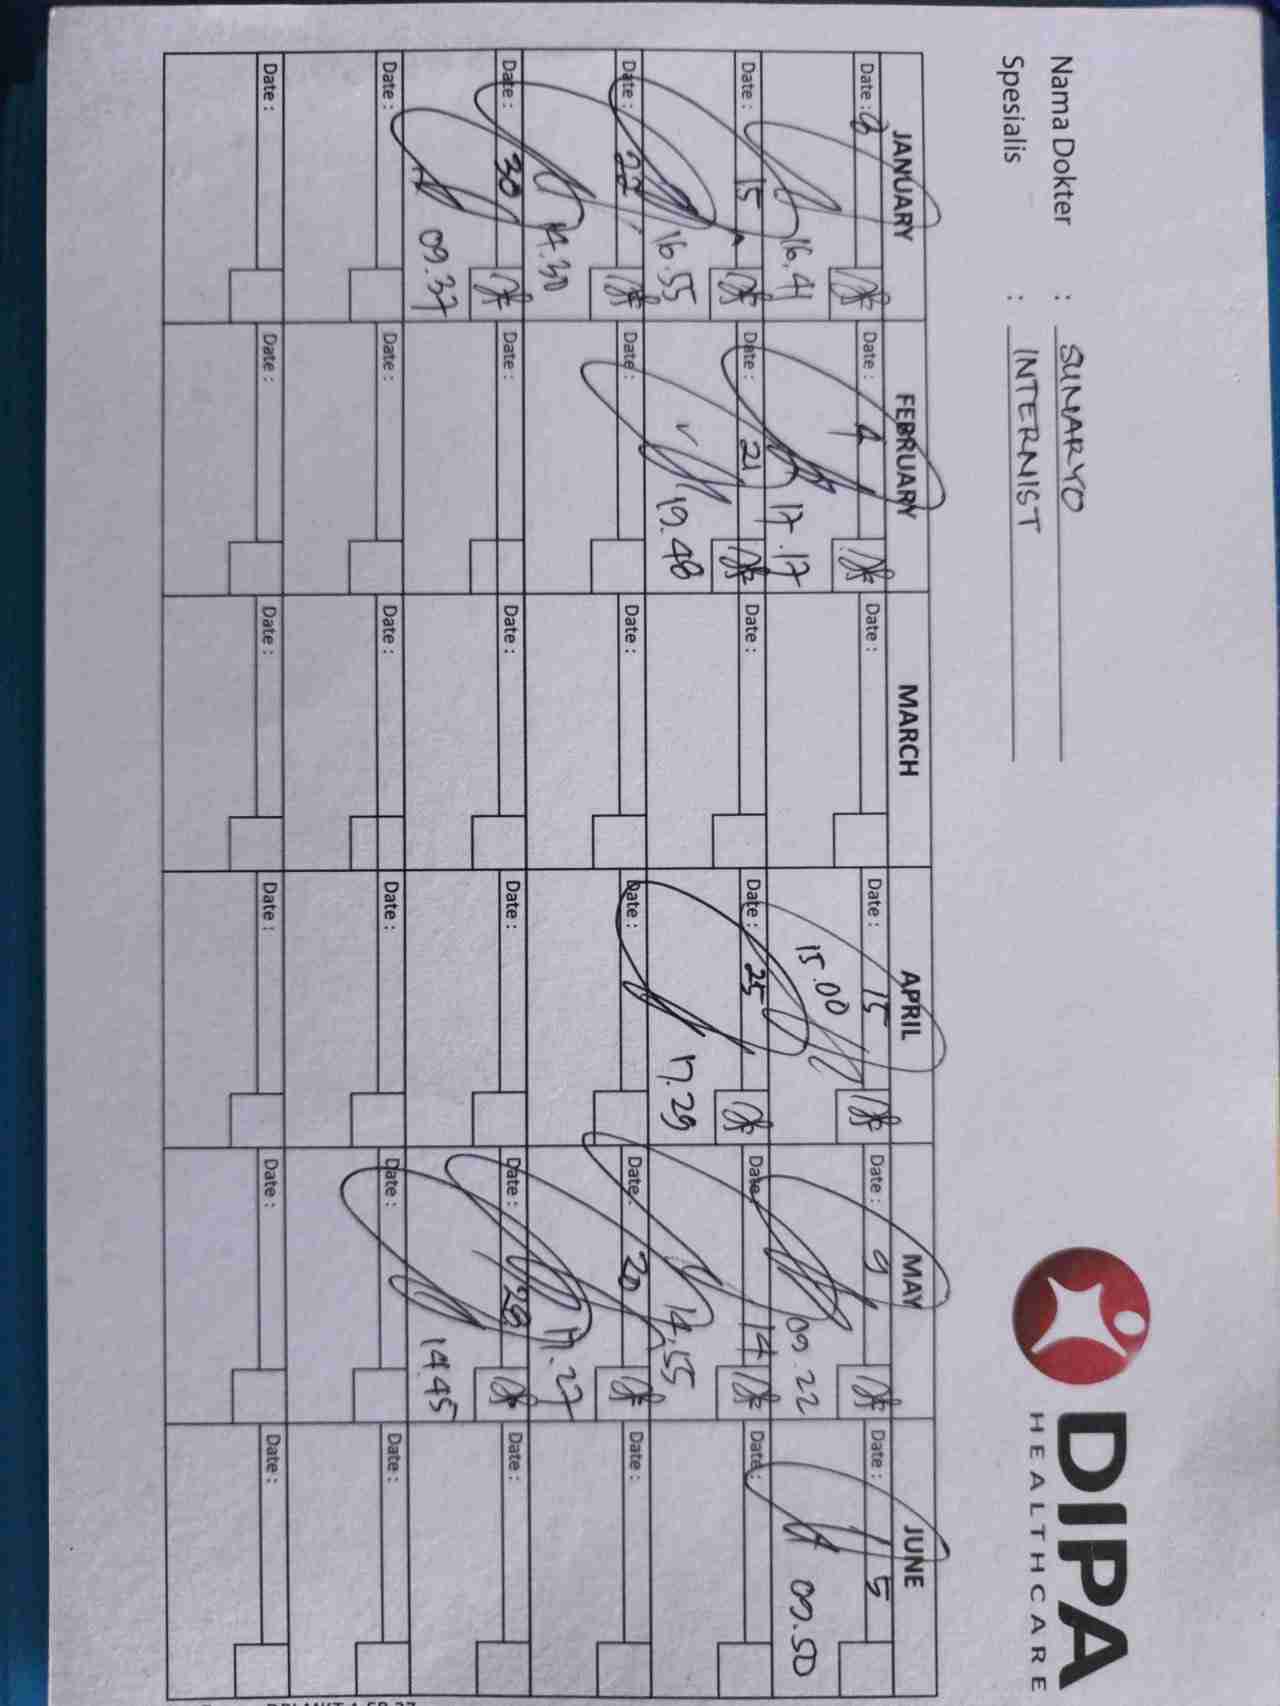 DIPA
HEALTHCARE
Nama Dokter : SUMARYO
Spesialis : INTERNIST
JANUARY FEBRUARY MARCH APRIL MAY JUNE
Date : 8 Date : 4 Date : Date : 15 Date : 9 Date : 5
16.41 17.17 15.00 09.22 09.50
Date : 15 Date : 21 Date : Date : 25 Date : 14 Date :
16.55 19.48 17.29 14.55
Date : 22 Date : Date : Date : Date : 20 Date :
14.30 17.27
Date : 30 Date : Date : Date : Date : 28 Date :
09.37 14.45
Date : Date : Date : Date : Date : Date :
Date : Date : Date : Date : Date : Date :